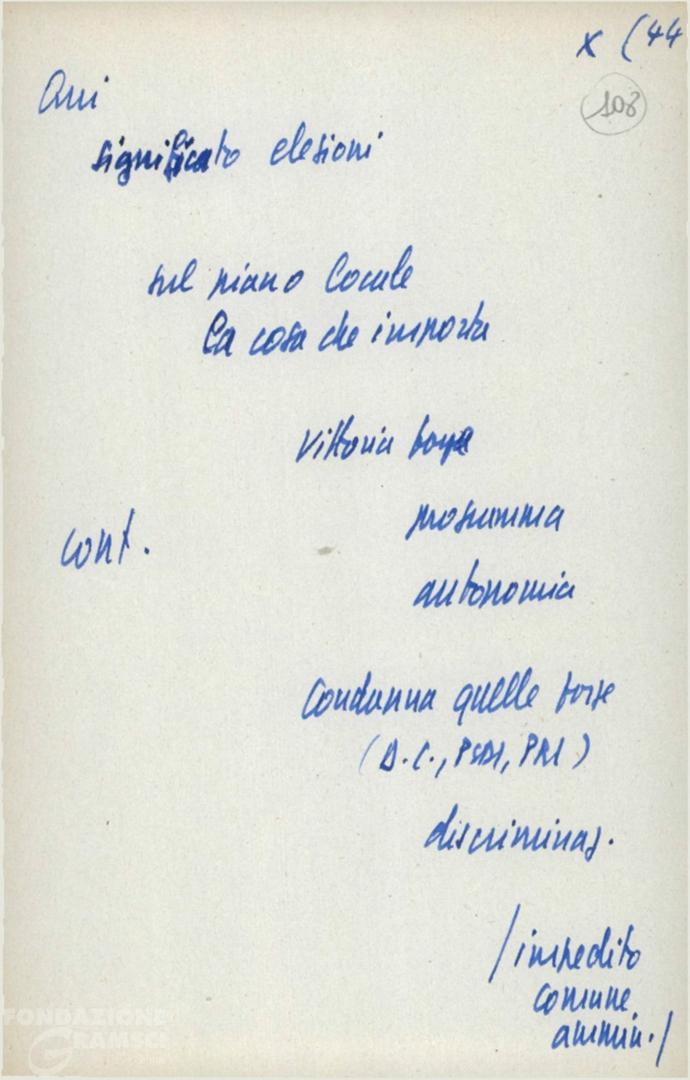 x (44
108
Qui
significato elezioni
sul piano locale
la cosa che importa
Vittoria forze
programma
cont.
autonomia
Condanna quelle forze
(D.C., PSDI, PRI)
discriminaz.
/impedito
comune
ammin./
FONDAZIONE
GRAMSCI